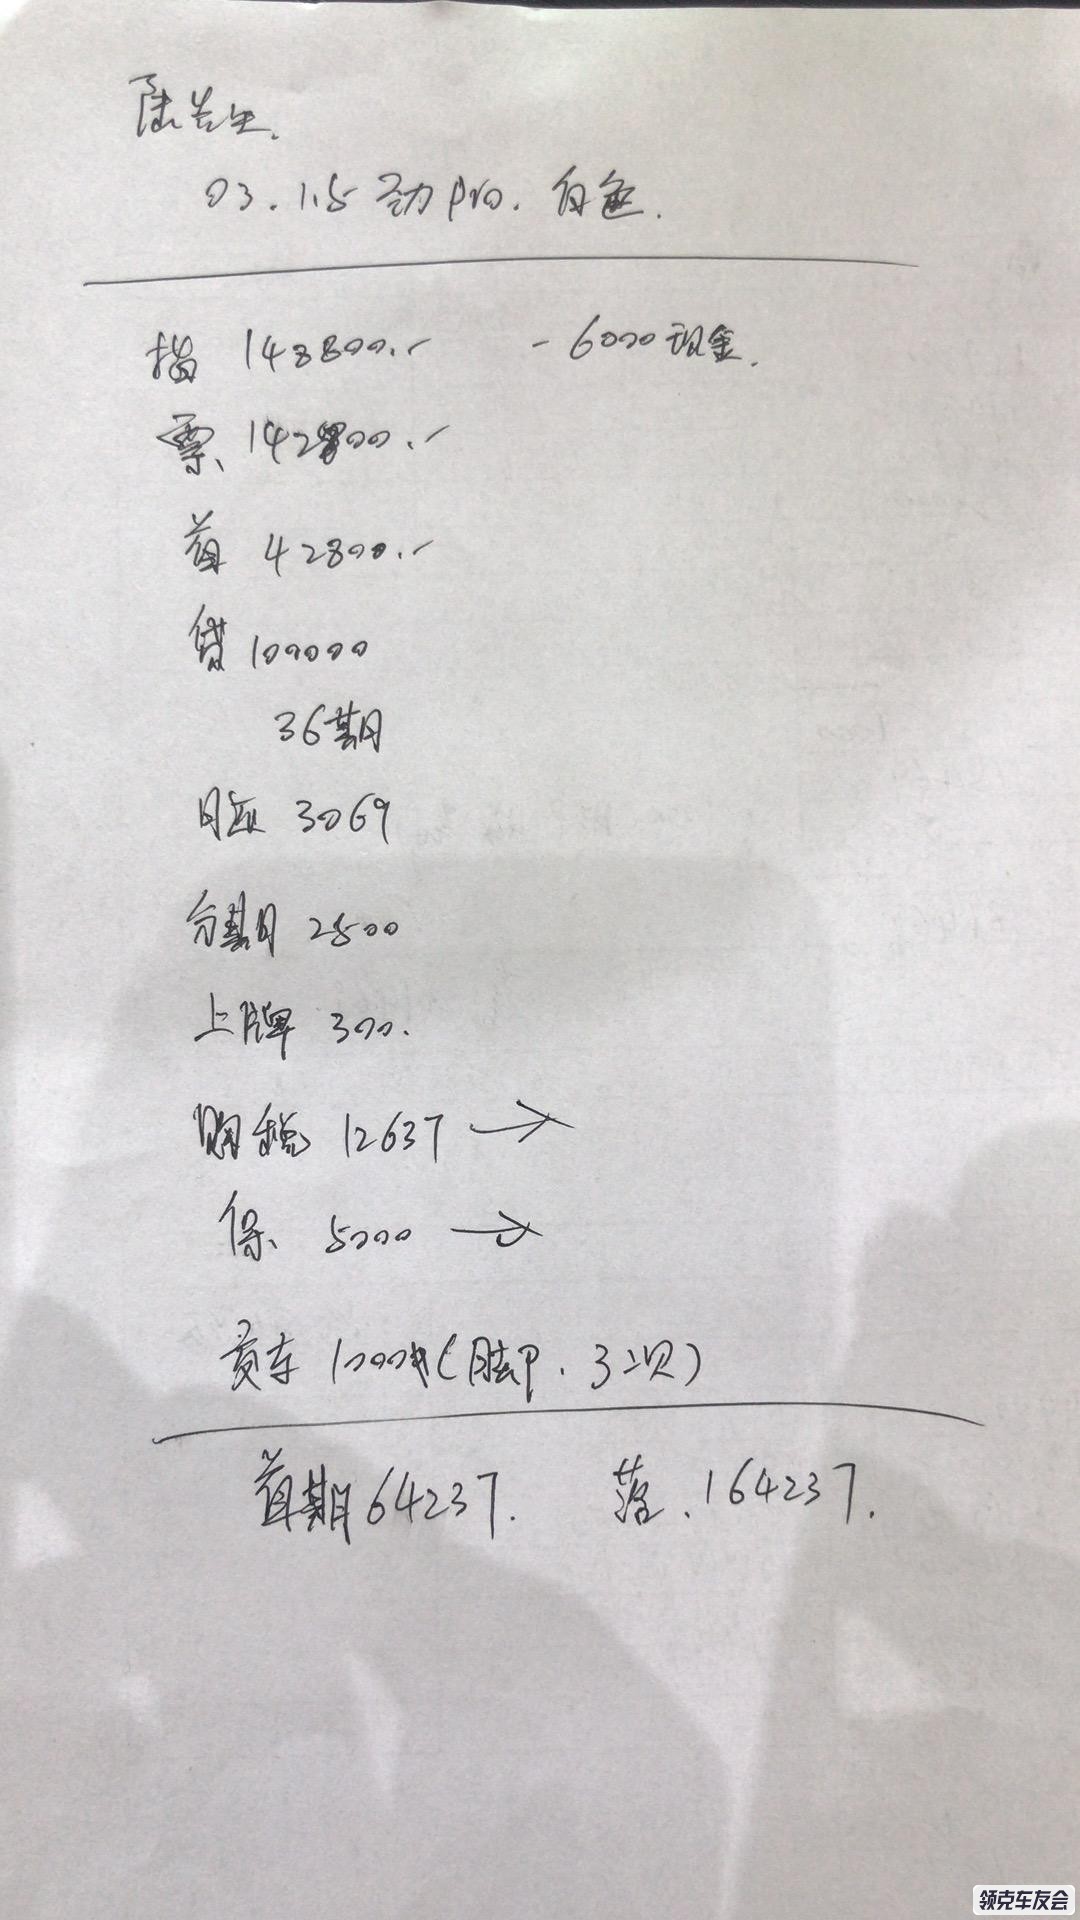 陆先生.
03.1.5 劲pro. 白色.
指 148800.- -6000现金.
票 142800.-
首 42800.-
贷 100000
36期
月还 3069
分期 2500
上牌 300.
购税 12637 →
保 5000 →
贡车 1000 (脚甲. 3次)
首期 64237. 落. 164237.
领克车友会